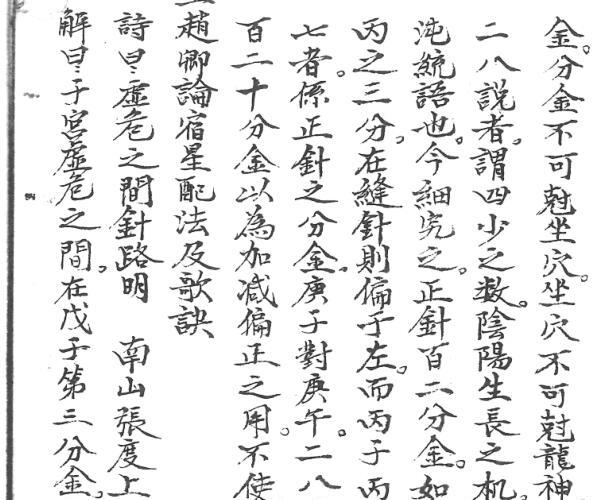 金。分金不可尅坐穴。坐穴不可尅龍神
二八説者。謂四少之数。陰陽生長之机。
沌統語也。今細究之。正針百二分金。如
丙之三分。在縫針則偏于左。而丙子丙
七者。係正針之分金。庚子對庚午。二八
百二十分金以為加减偏正之用。不使
趙卿論宿星配法及歌訣
詩曰虛危之間針路明　南山張度上
解曰子宮虛危之間。在戊子第三分金。